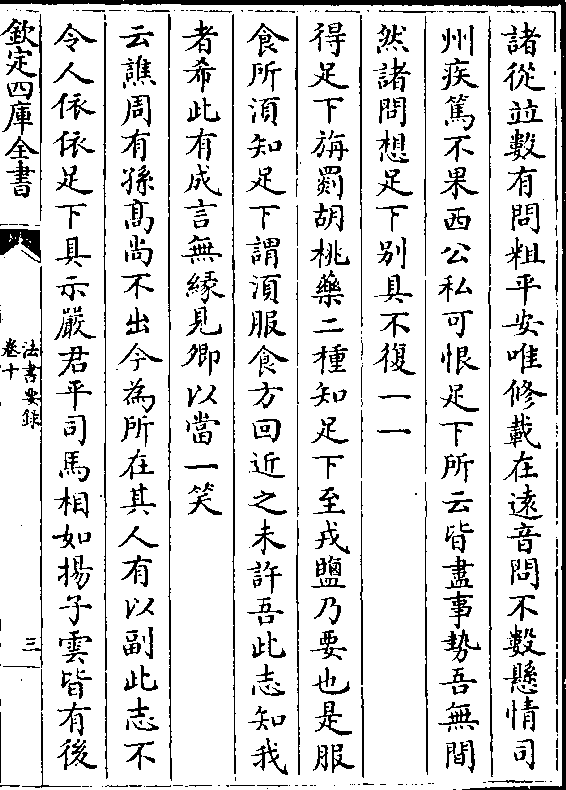 諸從並數有問粗平安唯修載在遠音問不數懸情司
州疾篤不果西公私可恨足下所云皆盡事勢吾無間
然諸問想足下別具不復一一
得足下旃罽胡桃藥二種知足下至戎鹽乃要也是服
食所湏知足下謂湏服食方回近之未許吾此志知我
者希此有成言無縁見卿以當一笑
云譙周有孫髙尚不出今為所在其人有以副此志不
令人依依足下具示嚴君平司馬相如揚子雲皆有後
欽定四庫全書
法書要録
卷十
三